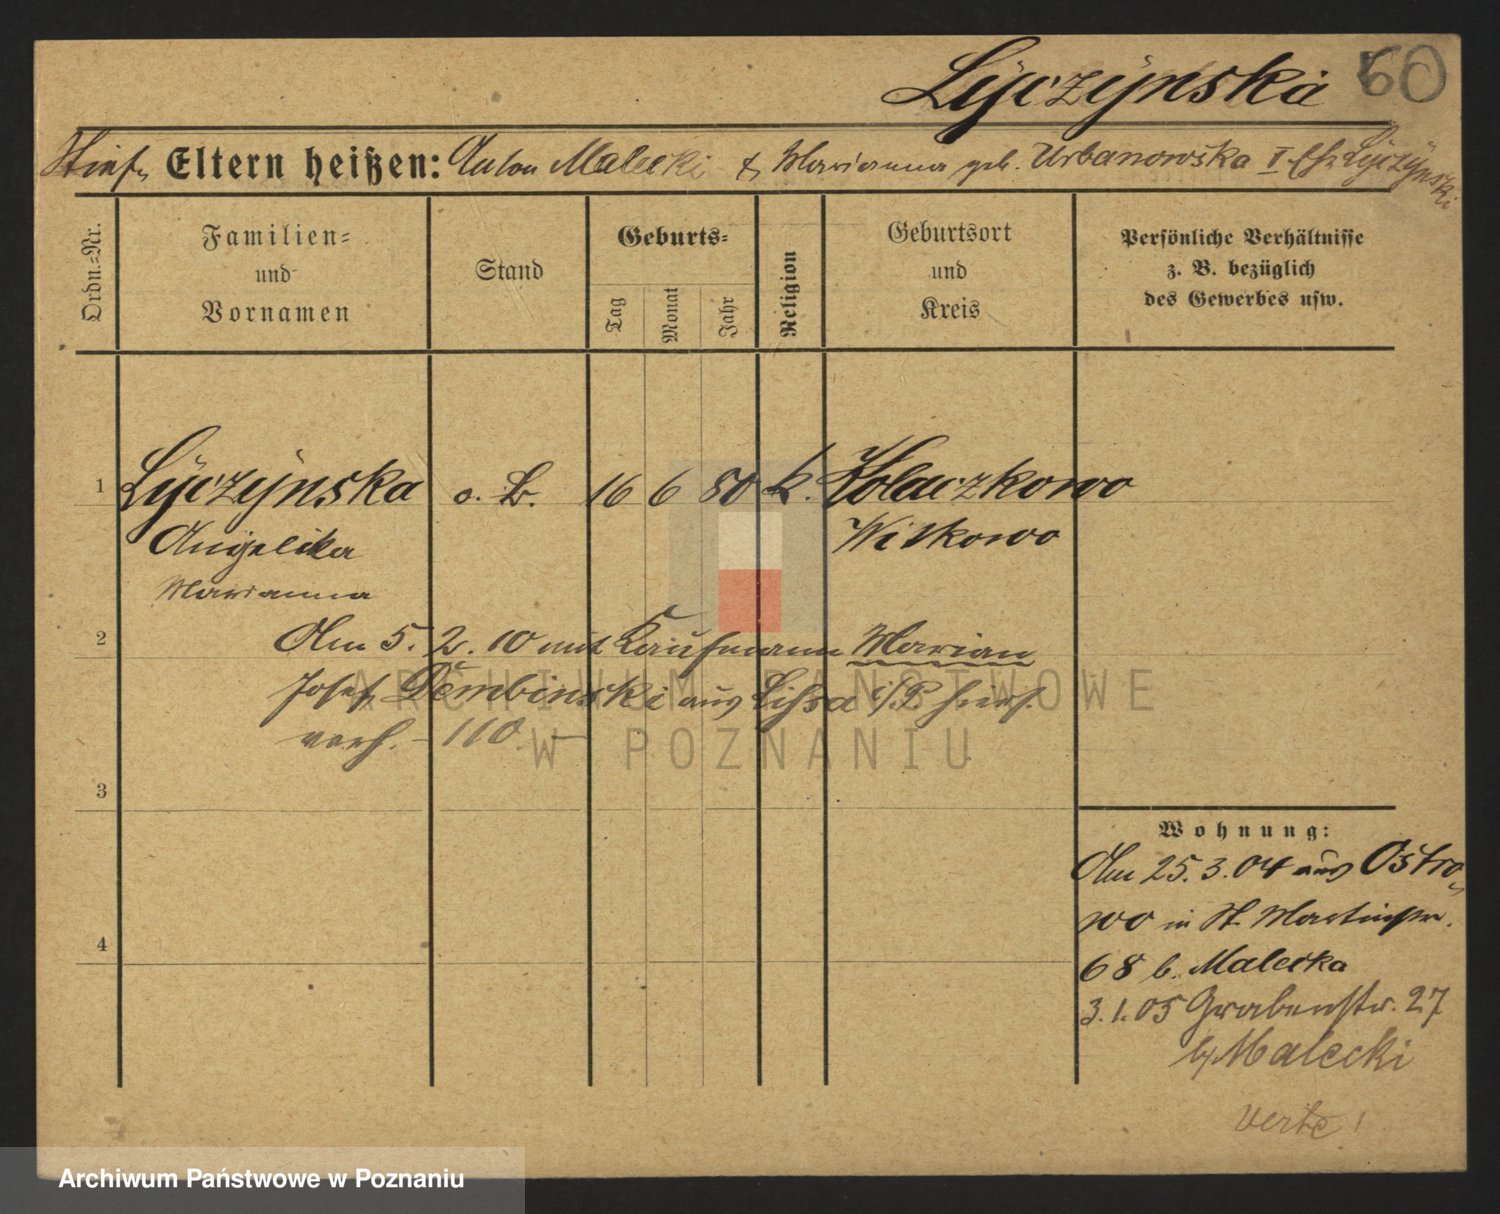 Lÿczÿnska 60
Stief- Eltern heißen: Anton Malecki & Marianna geb. Urbanowska I. Lÿczÿnski
Ordn.-Nr.
Familien-
und
Vornamen
Stand
Geburts-
Tag
Monat
Jahr
Religion
Geburtsort
und
Kreis
Persönliche Verhältnisse
z. B. bezüglich
des Gewerbes usw.
1 Lÿczÿnska o. B. 16 6 80 k. Kolaczkowo
Angelika Witkowo
Marianna
2 Am 5. 2. 10 mit Kaufmann Marian
Josef Dembinski aus Lissa i/P hier
verh. - 110. -
3
Wohnung:
Am 25.3.04 aus Ostro-
wo in St. Martinstr.
68 b. Malecka
3.1.05 Grabenstr. 27
b/Malecki
verte!
4
ARCHIWUM PAŃSTWOWE
W POZNANIU
Archiwum Państwowe w Poznaniu